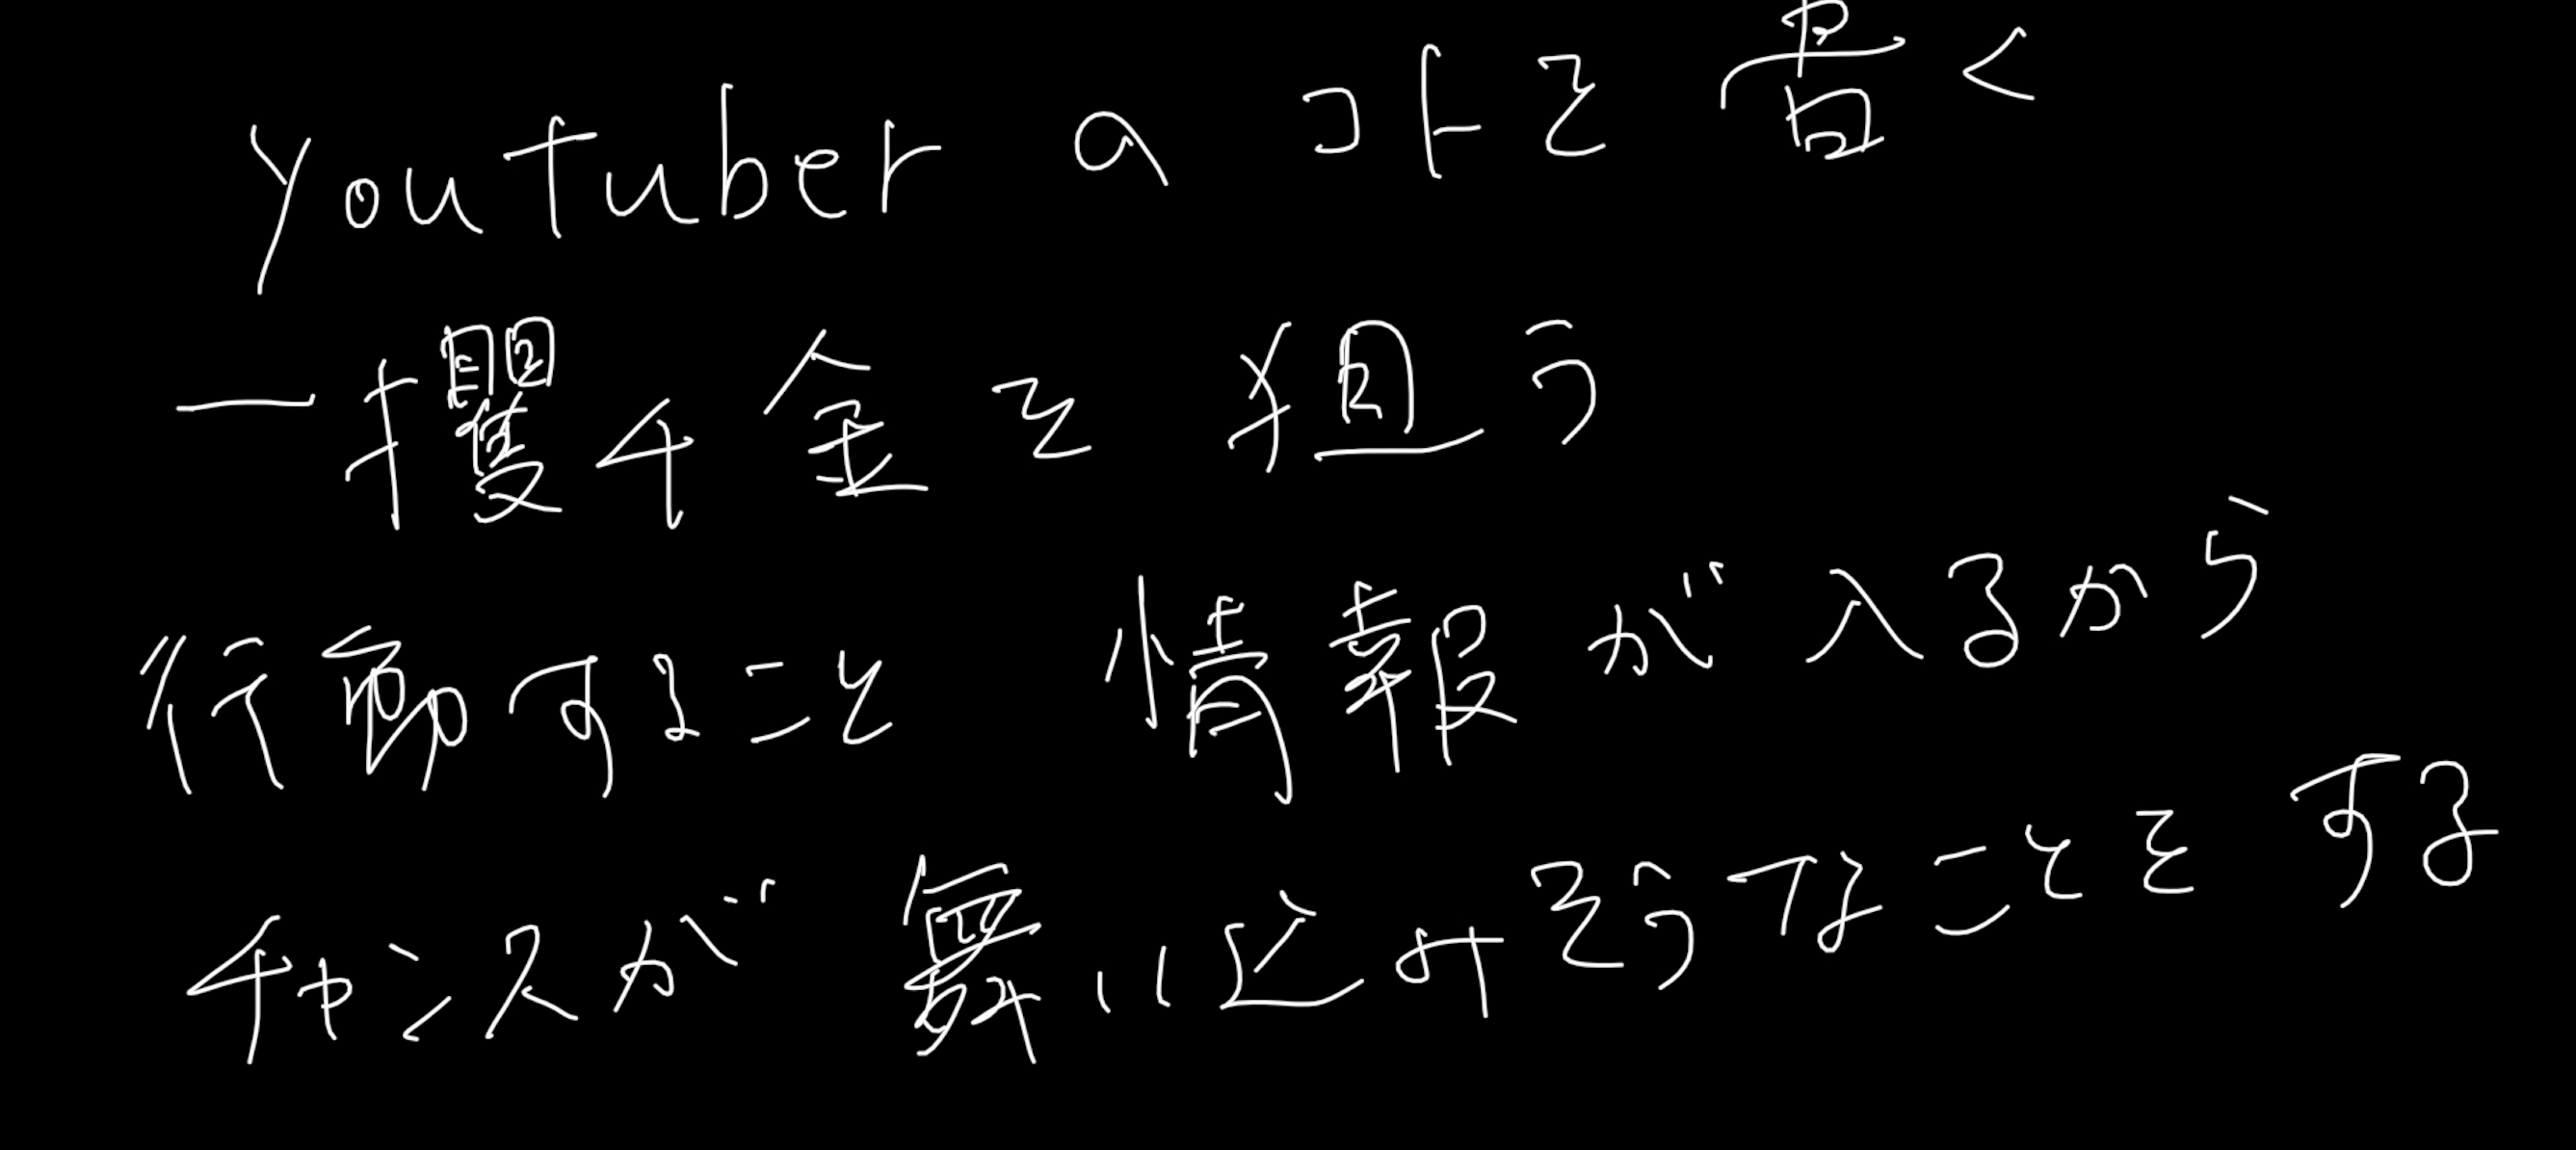 youtuber a コトを書く
一攫千金を狙う
行動すること 情報が入るから
チャンスが舞い込みそうなことをする